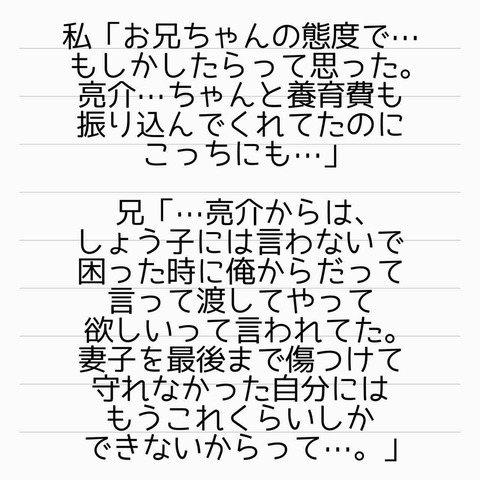 私「お兄ちゃんの態度で…
もしかしたらって思った。
亮介…ちゃんと養育費も
振り込んでくれてたのに
こっちにも…」
兄「…亮介からは、
しょう子には言わないで
困った時に俺からだって
言って渡してやって
欲しいって言われてた。
妻子を最後まで傷つけて
守れなかった自分には
もうこれくらいしか
できないからって…。」